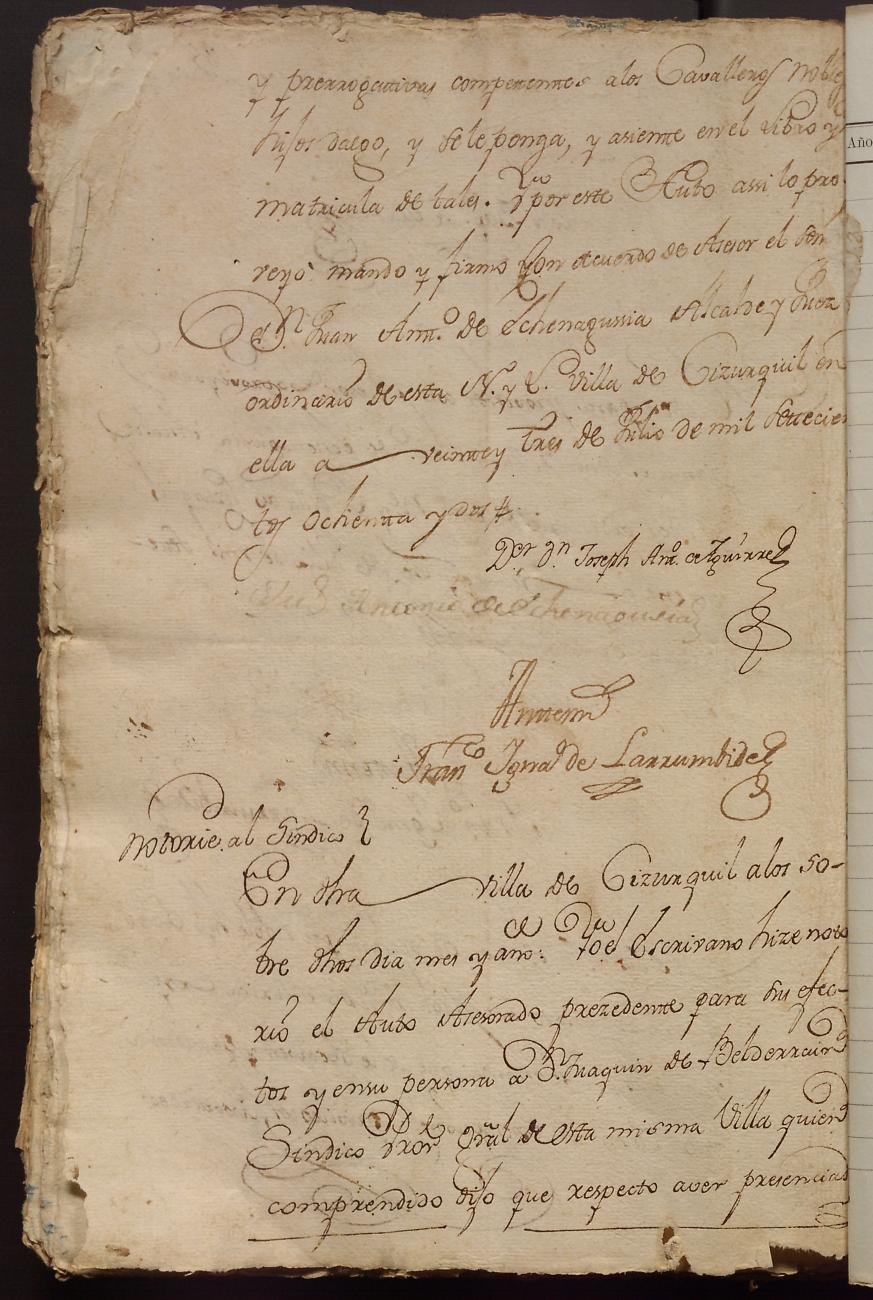 y prerrogativas competentes alos Cavalleros Nobles
hijos dalgo, y sele ponga, y asiente en el Libro y
matricula de tales. Y por este Auto assi lo pro
veyo mando y firmo con acuerdo de Asesor el Señor
Dn Juan Antto. de Echenagussia Alcalde y Juez
ordinario de esta N. y L. Villa de Cizurquil en
ella a veintey tres de Julio de mil setecien
tos ochenta y dos
Dor Dn Joseph Anto. de Yzuirre
Juan Antonio de Echenagusia
Antemi
Franco Ignao de Larrumbide
Notorie. al Sindico
En dha villa de Cizurquil alos so-
bre dhos dia mes y año: Yo el Escrivano hize noto
rio el Auto Asesorado prezedente para su efec-
tos y ensu persona a Dn. Juaquin de Belderrain
Sindico Pror gral de esta misma Villa quien
comprendido dijo que respecto aver presencia
Año